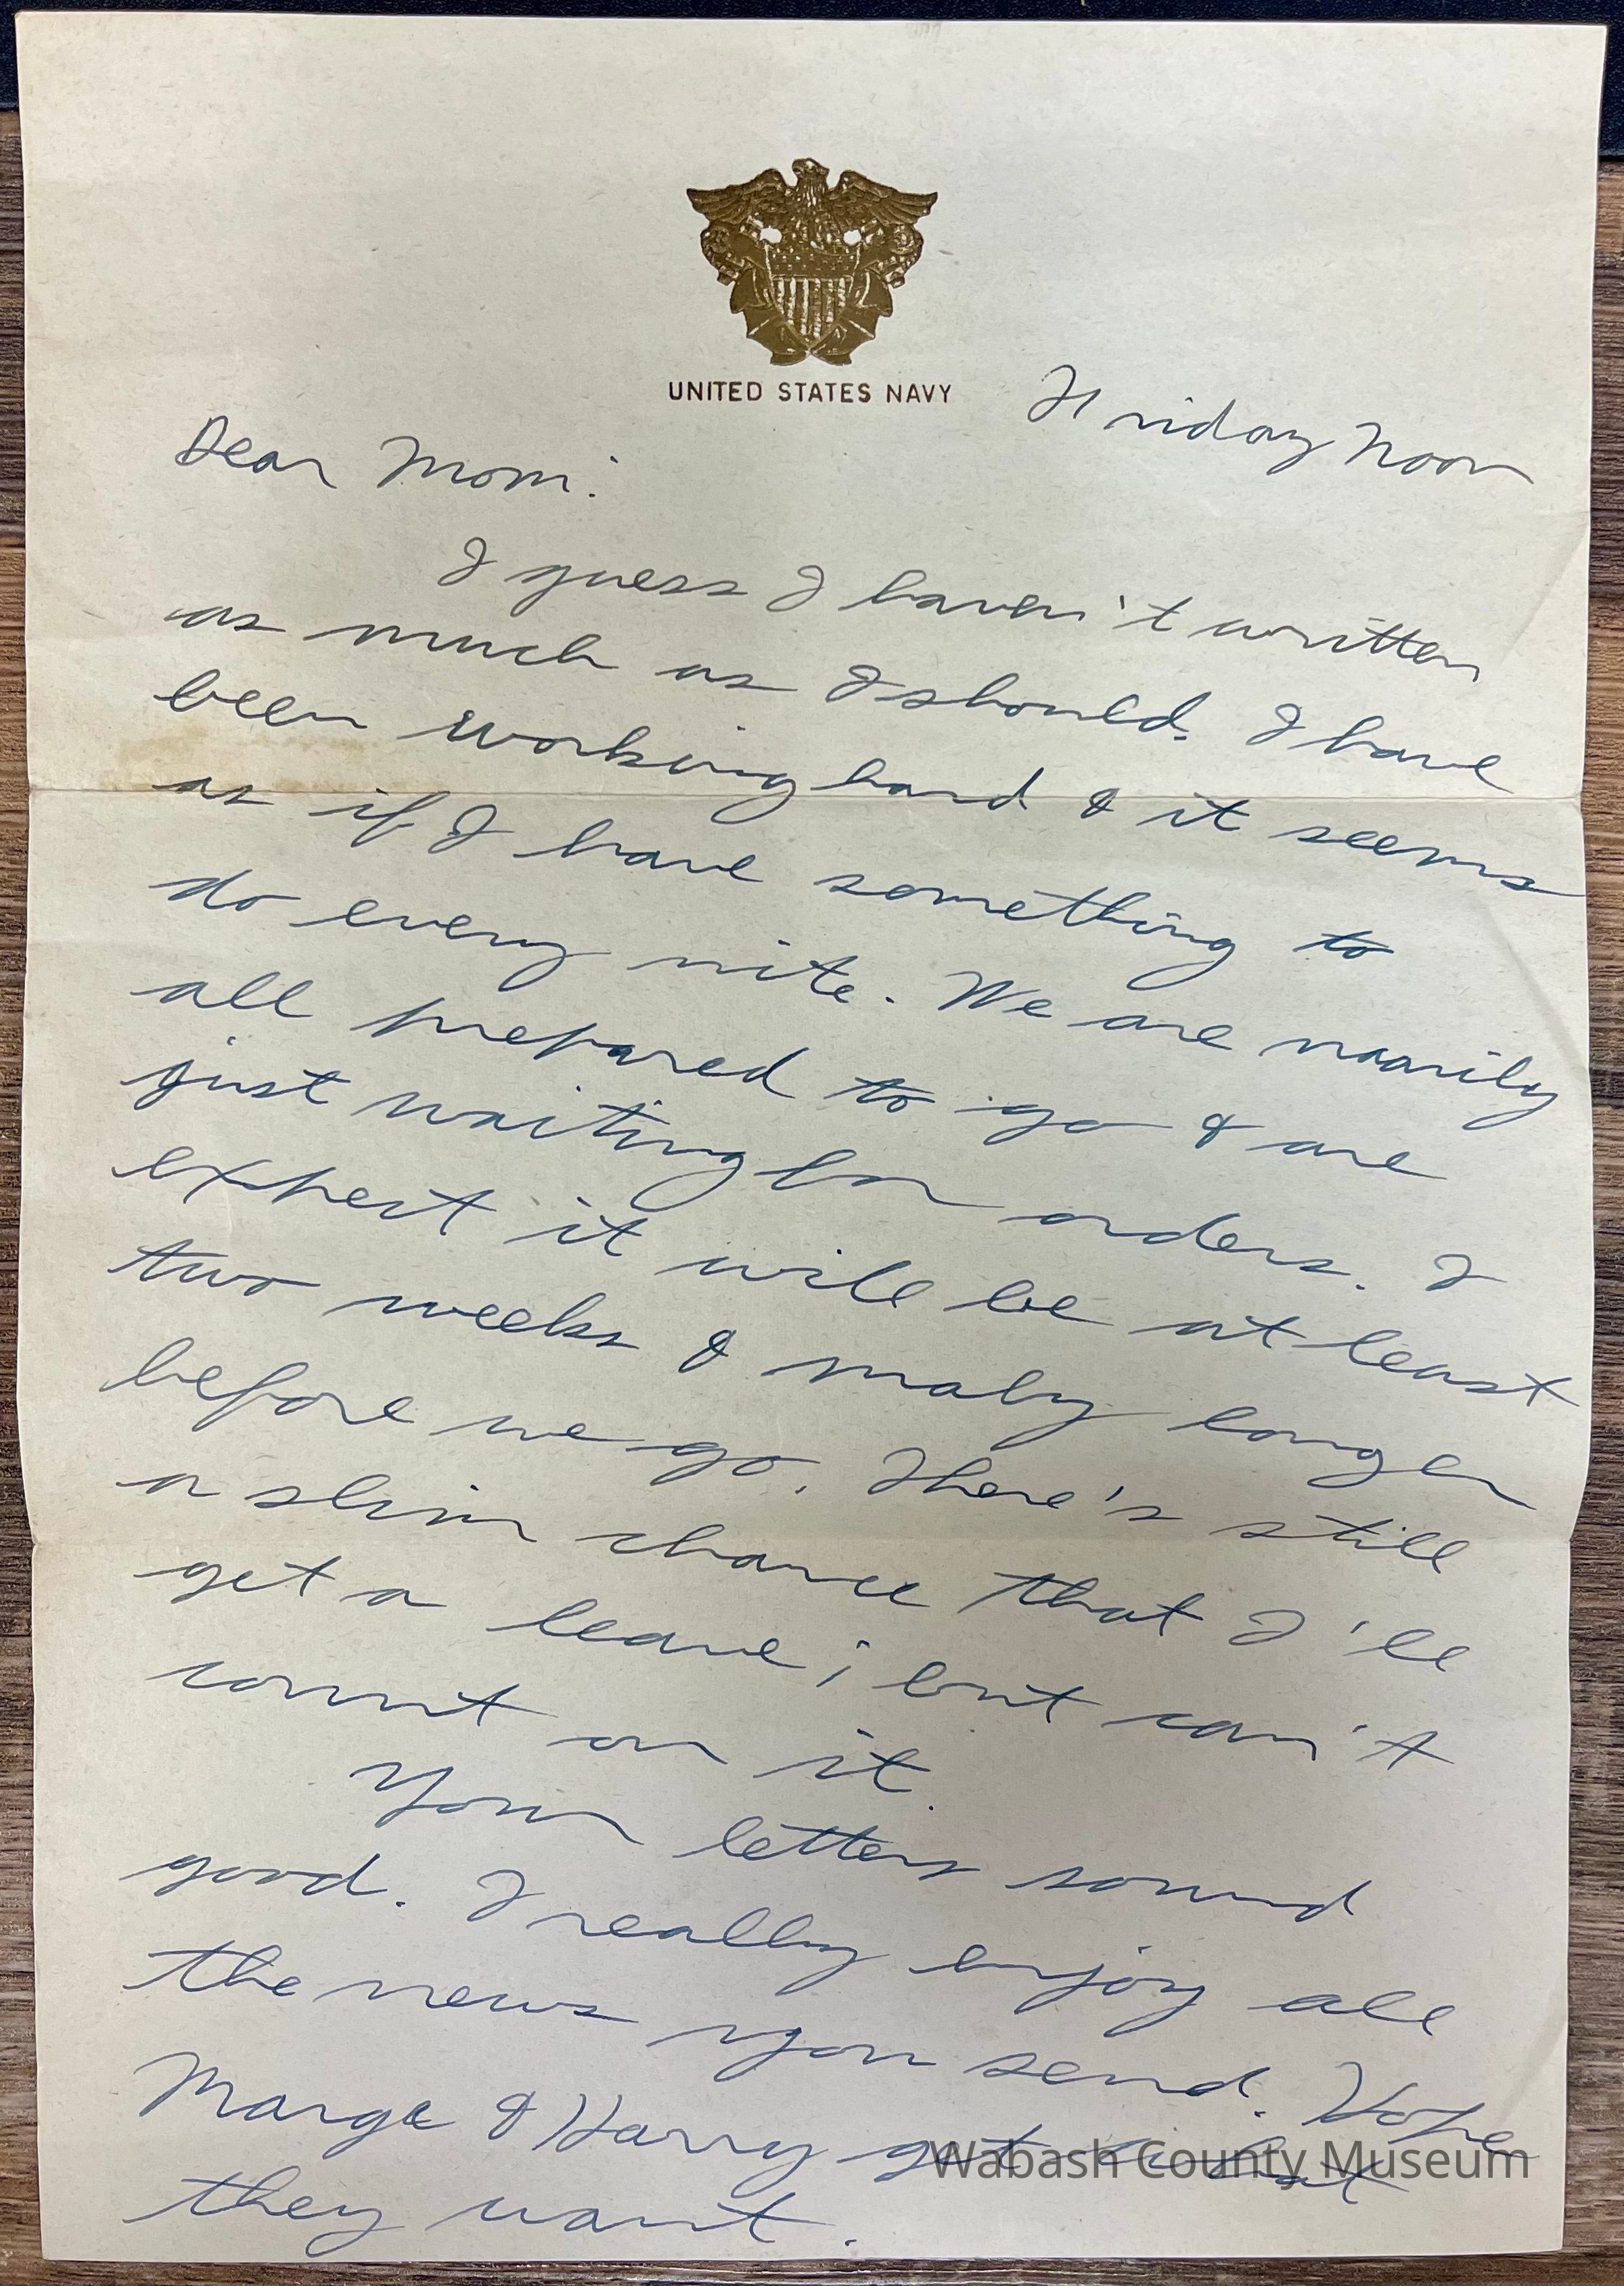 UNITED STATES NAVY
Friday Noon
Dear Mom:
I guess I haven't written
as much as I should. I have
been working hard & it seems
as if I have something to
do every nite. We are naarily
all prepared to go & are
just waiting for orders. I
expect it will be at least
two weeks & maby longer
before we go. There's still
a slim chance that I'll
get a leave; but can't
count on it.
Your letters sound
good. I really enjoy all
the news you send. Hope
Marge & Harry get what
they want.
Wabash County Museum